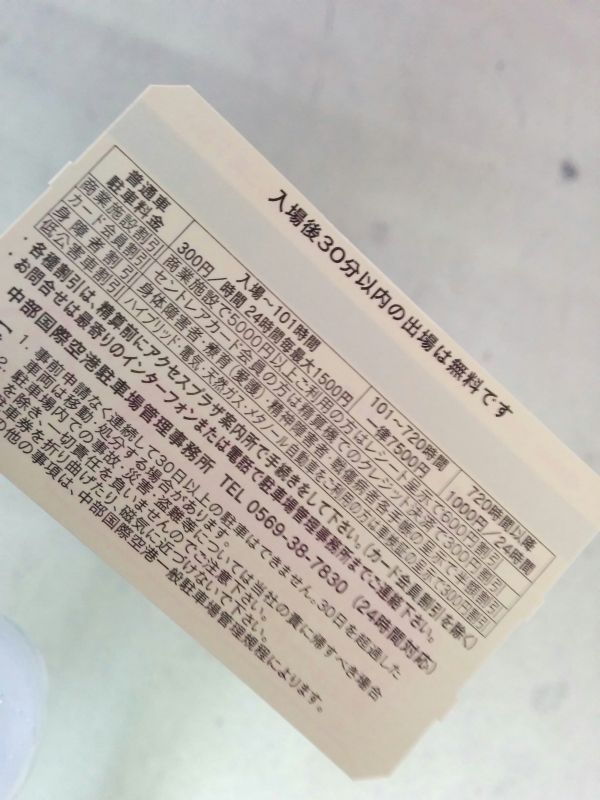 入場後30分以内の出場は無料です
普通車 駐車料金 入場～101時間 101～720時間 720時間以降
300円／時間 24時間毎最大1500円 一律7500円 1000円／24時間
商業施設割引 商業施設で5000円以上ご利用の方はレシート呈示で600円割引
カード会員割引 セントレアカード会員の方は精算機でのクレジット決済で300円割引
身障者割引 身体障害者・療育(愛護)・精神障害者・戦傷病者各手帳の呈示で半額割引
低公害車割引 ハイブリッド・電気・天然ガス・メタノール自動車をご利用の方は車検証の呈示で300円割引
・各種割引は、精算前にアクセスプラザ案内所で手続きをして下さい。(カード会員割引を除く)
・お問合せは最寄りのインターフォンまたは電話で駐車場管理事務所までご連絡下さい。
中部国際空港駐車場管理事務所 TEL 0569-38-7830 (24時間対応)
1. 事前申請なく連続して30日以上の駐車はできません。30日を超過した
車両は移動・処分する場合があります。
2. 駐車場内での事故・災害・盗難等については当社の責に帰すべき場合
を除き、一切責任を負いませんのでご注意下さい。
駐車券を折り曲げたり、磁気に近づけないで下さい。
の他の事項は、中部国際空港一般駐車場管理規程によります。